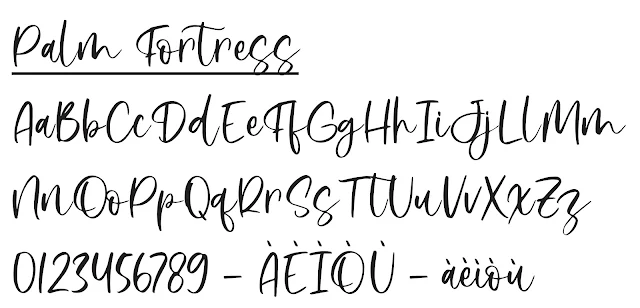 Palm Fortress
AaBbCcDdEeFfGgHhIiJjLlMm
NnOoPpQqRrSsTtUuVvXxZz
0123456789 - ÀÈÌÒÙ - àèìòù